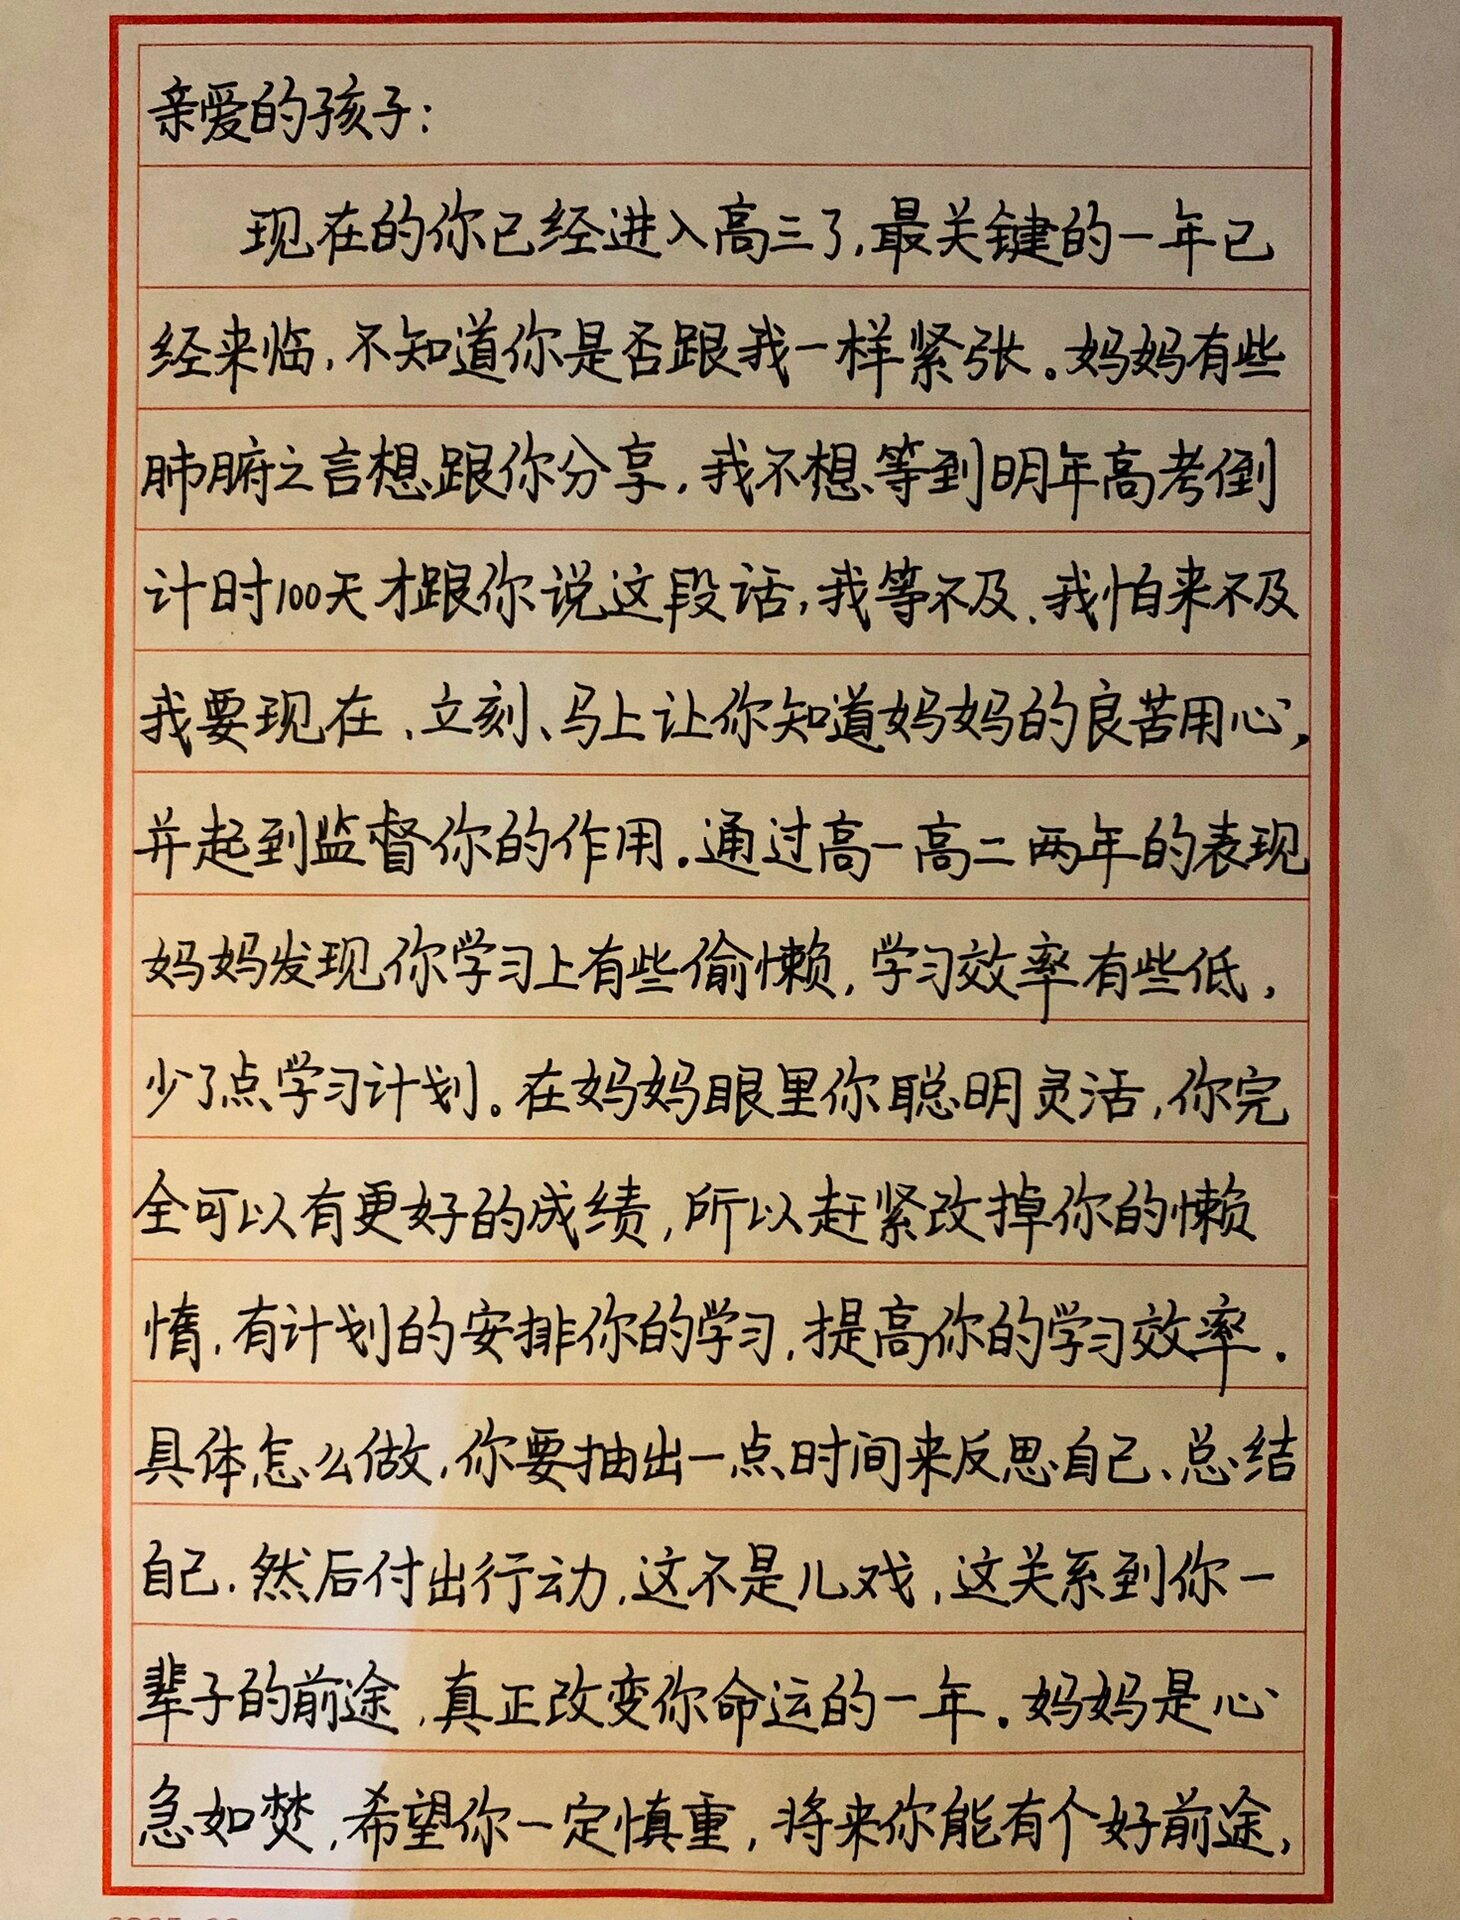 亲爱的孩子：
现在的你已经进入高三了，最关键的一年已
经来临，不知道你是否跟我一样紧张。妈妈有些
肺腑之言想跟你分享，我不想等到明年高考倒
计时100天才跟你说这段话，我等不及、我怕来不及
我要现在、立刻、马上让你知道妈妈的良苦用心，
并起到监督你的作用。通过高一高二两年的表现
妈妈发现你学习上有些偷懒，学习效率有些低，
少了点学习计划。在妈妈眼里你聪明灵活，你完
全可以有更好的成绩，所以赶紧改掉你的懒
惰，有计划的安排你的学习，提高你的学习效率。
具体怎么做，你要抽出一点时间来反思自己、总结
自己.然后付出行动，这不是儿戏，这关系到你一
辈子的前途，真正改变你命运的一年。妈妈是心
急如焚，希望你一定慎重，将来你能有个好前途，